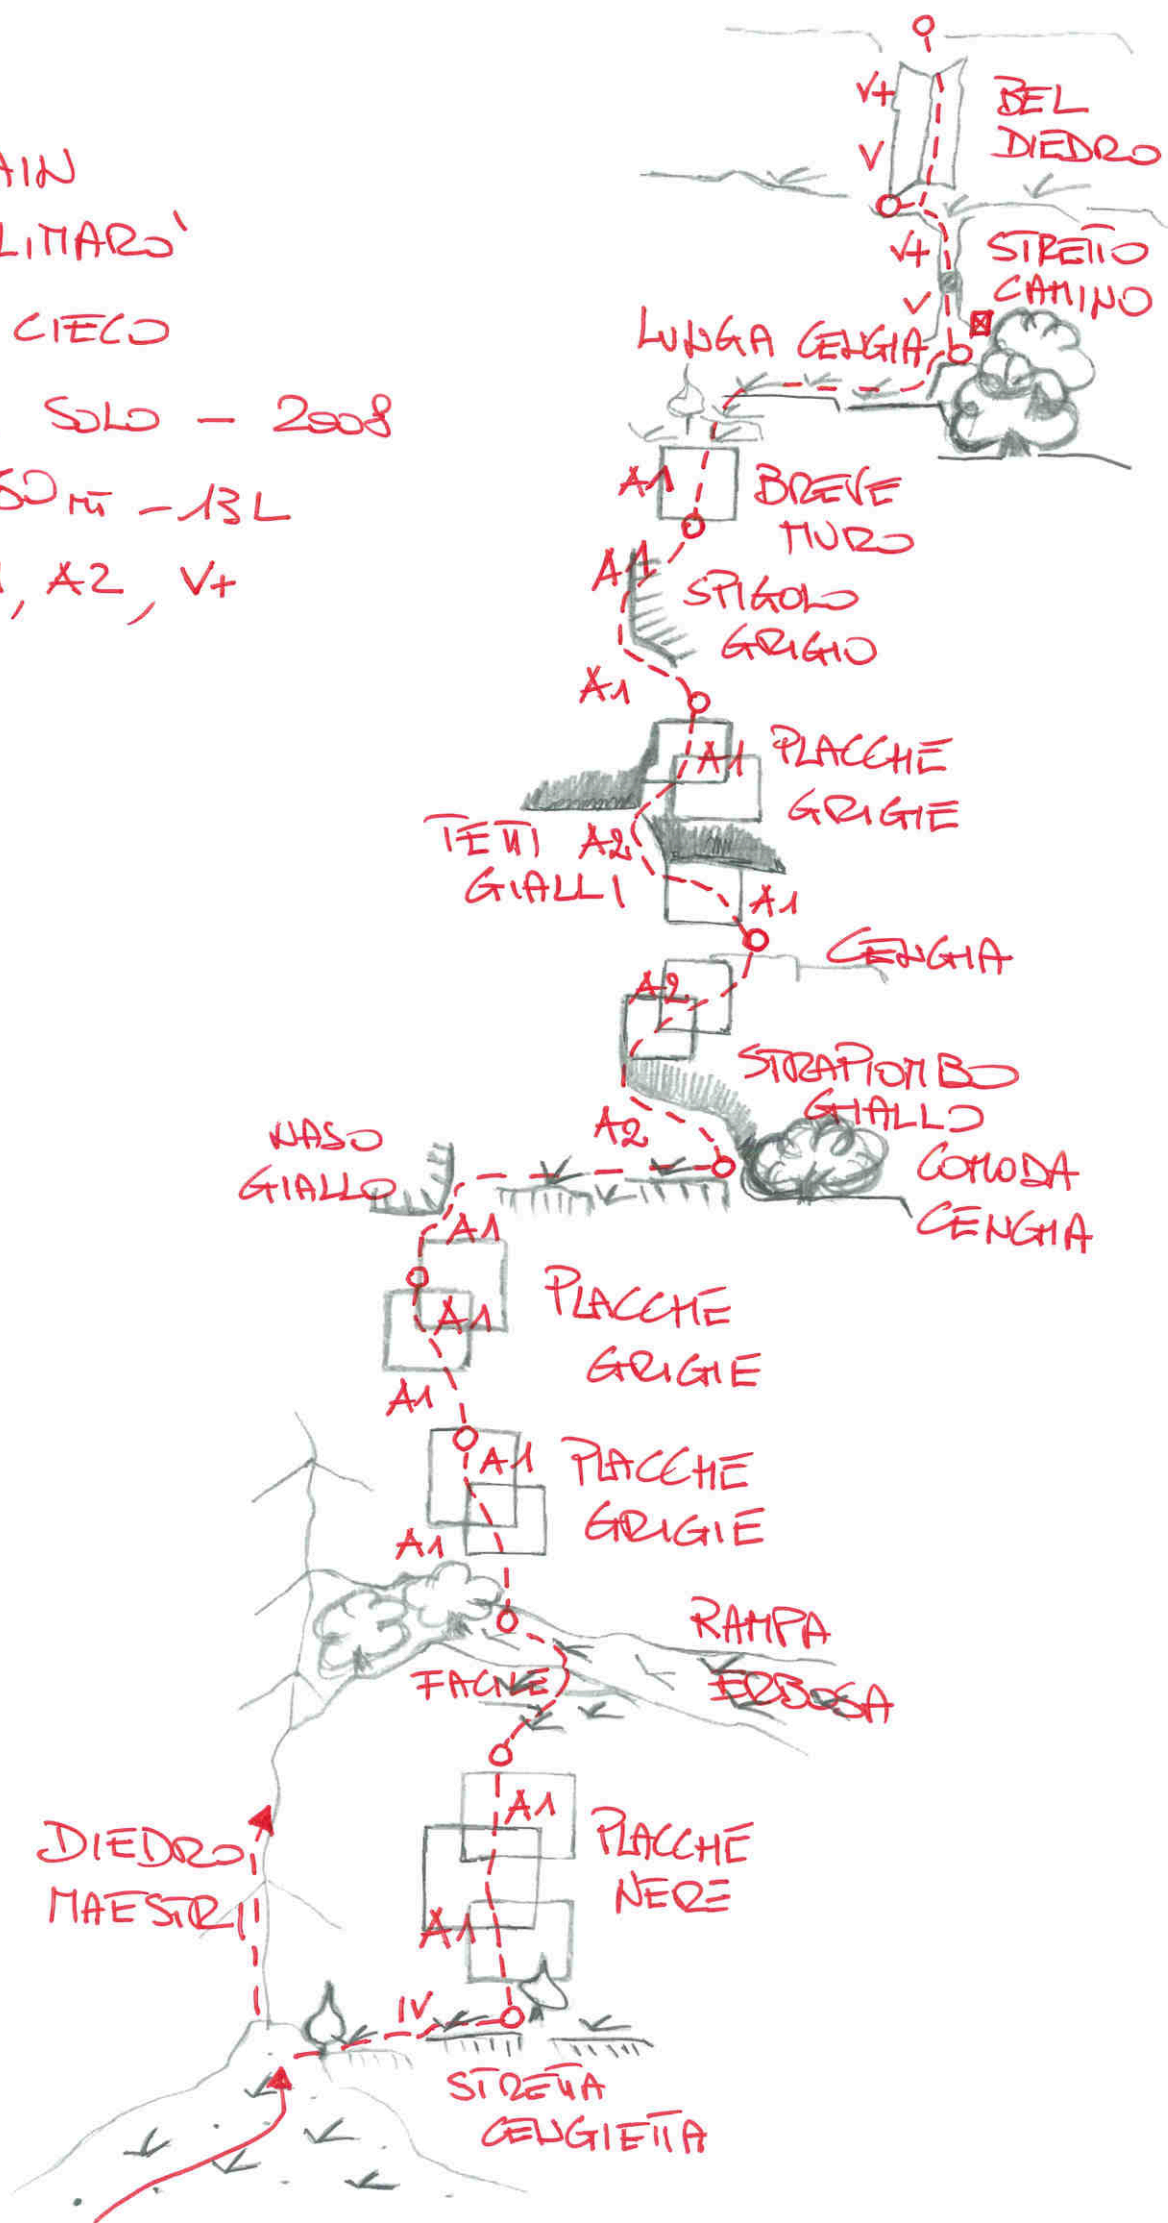 AIN
LIMARO'
CIECO
SOLO - 2008
50 mt - 13 L
, A2, V+
V+
BEL
DIEDRO
V
V+
STRETTO
CAMINO
V
LUNGA CENGIA
A1
BREVE
MURO
A1
SPIGOLO
GRIGIO
A1
A1
PLACCHE
GRIGIE
TETTI
GIALLI
A2
A1
CENGIA
A2
STRAPIOMBO
GIALLO
A2
NASO
GIALLO
COMODA
CENGIA
A1
PLACCHE
GRIGIE
A1
A1
A1
PLACCHE
GRIGIE
A1
RAMPA
ERBOSA
FACILE
A1
PLACCHE
NERE
DIEDRO
MAESTRI
A1
IV
STRETTA
CENGIETTA